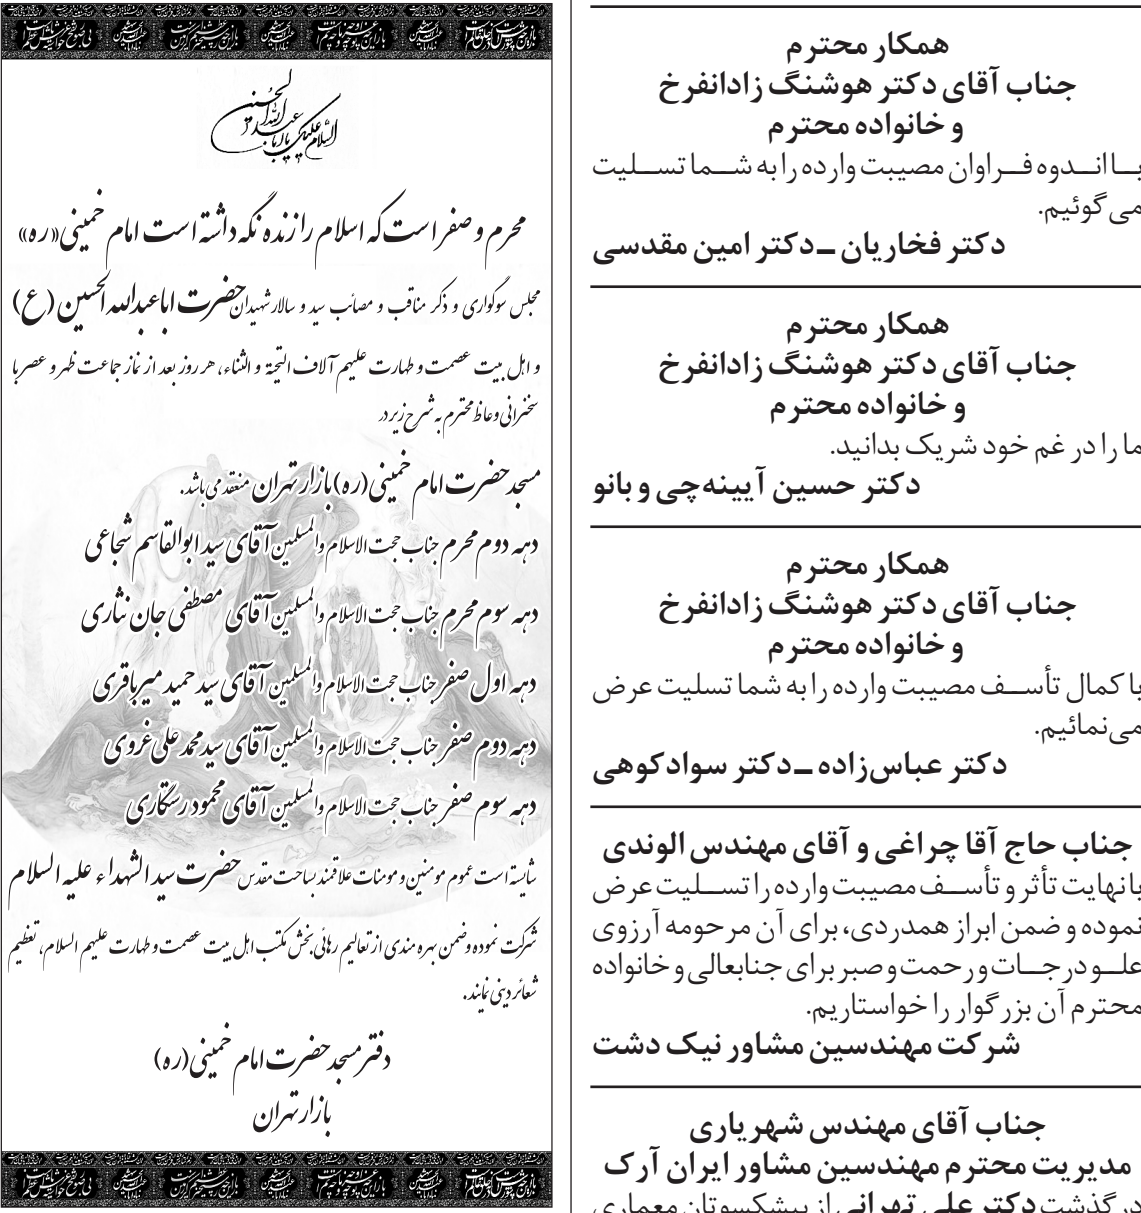 همکار محترم
جناب آقای دکتر هوشنگ زادانفرخ
و خانواده محترم
با انـدوه فـراوان مصیبت وارده را به شـما تسـلیت
می‌گوئیم.
دکتر فخاریان ــ دکتر امین مقدسی
همکار محترم
جناب آقای دکتر هوشنگ زادانفرخ
و خانواده محترم
ما را در غم خود شریک بدانید.
دکتر حسین آیینه‌چی و بانو
همکار محترم
جناب آقای دکتر هوشنگ زادانفرخ
و خانواده محترم
با کمال تأسـف مصیبت وارده را به شما تسلیت عرض
می‌نمائیم.
دکتر عباس‌زاده ــ دکتر سوادکوهی
جناب حاج آقا چراغی و آقای مهندس الوندی
با نهایت تأثر و تأسـف مصیبت وارده را تسـلیت عرض
نموده و ضمن ابراز همدردی، برای آن مرحومه آرزوی
علـو درجـات و رحمت و صبر برای جنابعالی و خانواده
محترم آن بزرگوار را خواستاریم.
شرکت مهندسین مشاور نیک دشت
جناب آقای مهندس شهریاری
مدیریت محترم مهندسین مشاور ایران آرک
درگذشت دکتر علی تهرانی از پیشکسوتان معماری
السلام علیک یا ابا عبدالله الحسین
محرم و صفر است که اسلام را زنده نگه داشته است امام خمینی«ره»
مجلس سوگواری و ذکر مناقب و مصائب سید و سالار شهیدان حضرت اباعبدالله الحسین (ع)
و اهل بیت عصمت و طهارت علیهم آلاف التحیة و الثناء، هر روز بعد از نماز جماعت ظهر و عصر با
سخنرانی وعاظ محترم به شرح زیر در
مسجد حضرت امام خمینی(ره) بازار تهران منعقد می‌باشد.
دهه دوم محرم جناب حجت الاسلام و المسلمین آقای سید ابوالقاسم شجاعی
دهه سوم محرم جناب حجت الاسلام و المسلمین آقای مصطفی جان نثاری
دهه اول صفر جناب حجت الاسلام و المسلمین آقای سید حمید میرباقری
دهه دوم صفر جناب حجت الاسلام و المسلمین آقای سید محمد علی غروی
دهه سوم صفر جناب حجت الاسلام و المسلمین آقای محمود رستگاری
شایسته است عموم مومنین و مومنات علاقمند بساحت مقدس حضرت سید الشهداء علیه السلام
شرکت نموده و ضمن بهره مندی از تعالیم رهائی بخش مکتب اهل بیت عصمت و طهارت علیهم السلام، تعظیم
شعائر دینی نمایند.
دفتر مسجد حضرت امام خمینی(ره)
بازار تهران